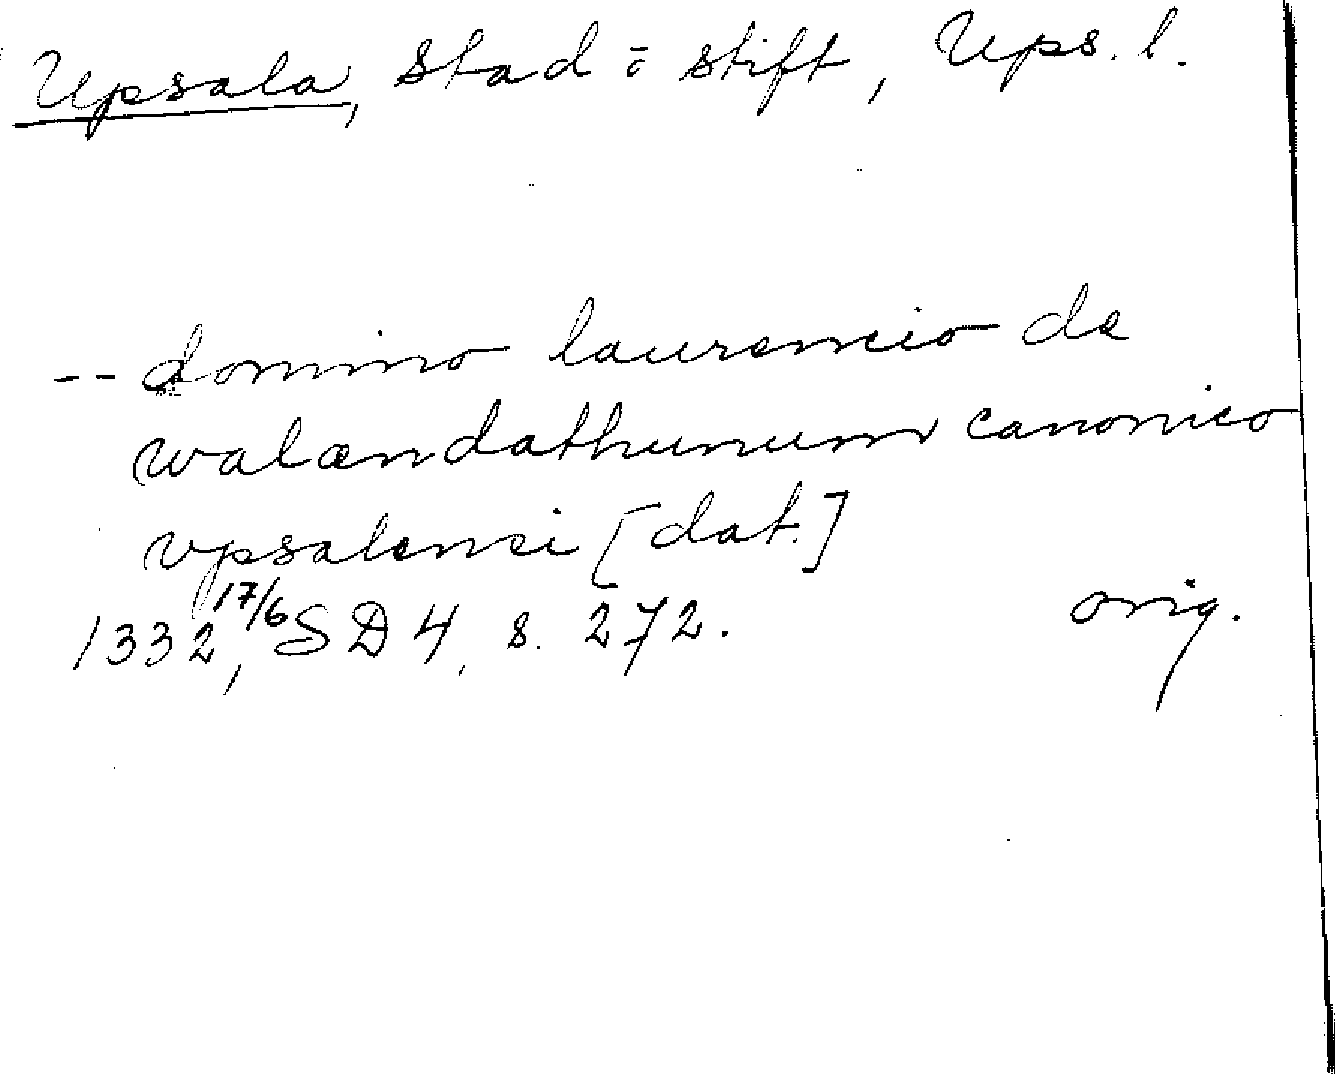 Upsala, stad o stift, Ups. l.
-- domino laurencio de
walændathunum canonico
vpsalensi [dat.]
1332, 17/6 SD 4, s. 272. orig.